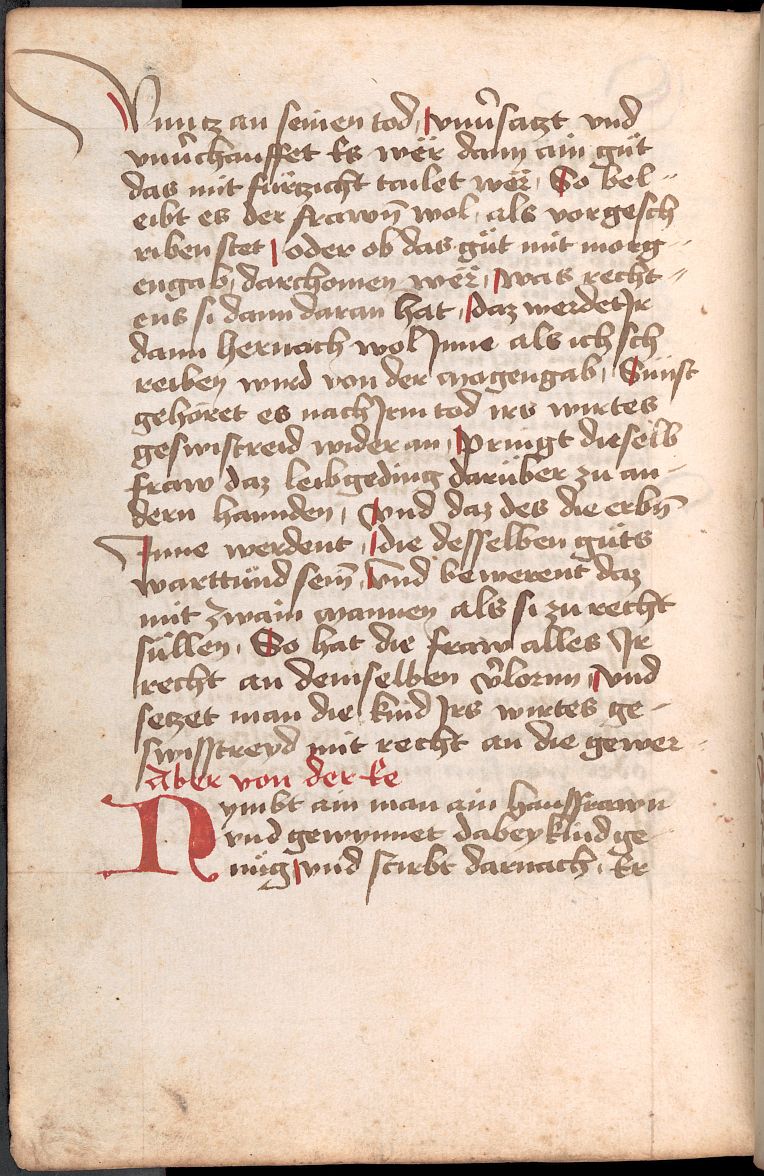 Vnntz an seinen tod, vnu̇satzt vnd
vnu̇chauffet Es wër dann ain güt
das mit fürtzicht tailet wër, So bel-
eibt es der frawn̄ wol, als vorgesch
riben stet, oder ob das güt mit morg-
engab, darchomen wër, was recht-
ens si dann daran hat, daz werdet Ir
dann hernach wol Jnne als ich sch
reiben wird von der Magengab, Sünst
gehöret es nach Irm tod irs wirtes
geswistreid wider an, pringt dieselb
fraw daz leibgeding darüber zu an-
dern hannden, Vnd daz des die erbn̄
Jnne werdent, die desselben güts
warttünd sein̄, Vnd bewerent daz
mit zwain Mannen als si zu recht
süllen, So hat die fraw alles Ir
recht an demselben v̇lornn, Vnd
setzet man die kind Irs wirtes ge-
swisstreyd mit recht an die gewer-
Aber von der Ee
Nymbt ain man ain hausfrawn
vnd gewynnet dabey kind ge-
nüg, vnd stirbt darnach, Er